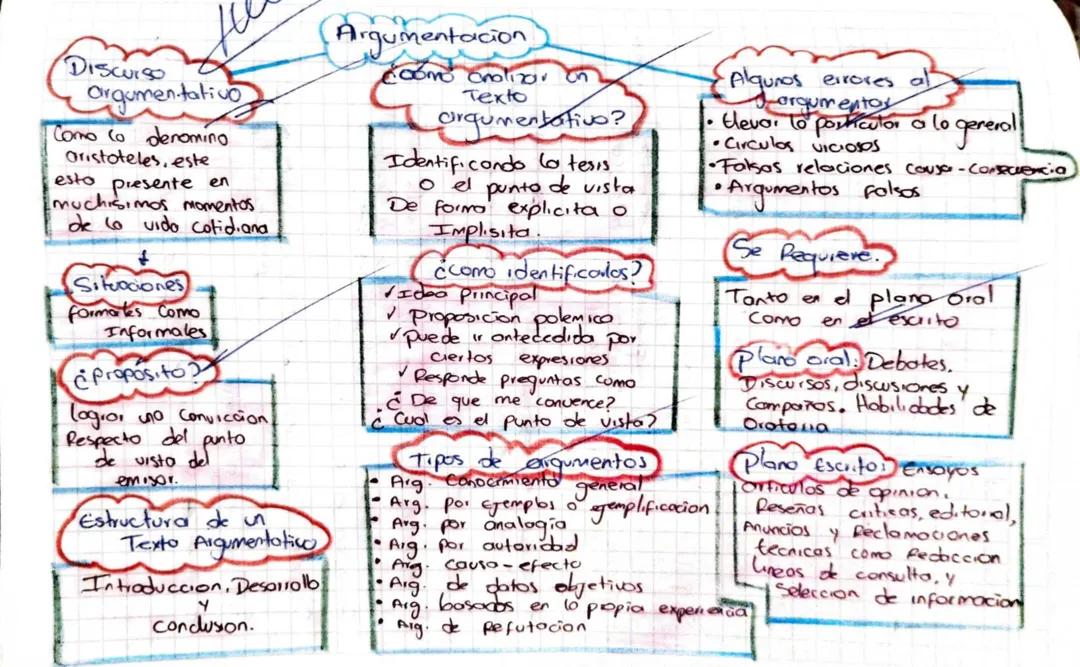 Argumentacion
Discurso
argumentativo
Como lo denomino
aristoteles, este
esta presente en
muchisimos momentos
de la vida cotidiana
Situaciones
formales como
Informales
¿Proposito?
lograr una conviccion
Respecto del punto
de vista del
emisor.
Estructura de un
Texto Argumentativo
Introduccion, Desarrollo
y
conclusion.
¿Cómo analizar un
Texto
argumentativo?
Identificando la tesis
o el punto de vista
De forma explicita o
Implisita.
¿como identificarlos?
✓ Idea principal
✓ proposicion polemica
✓ puede ir antecedida por
ciertos expresiones
✓ Responde preguntas como
¿ De que me convence?
¿ Cual es el punto de vista?
Tipos de argumentos
• Arg. conocimiento general
• Arg. por ejemplos o ejemplificacion
• Arg. por analogia
• Arg. por autoridad
• Arg. causa-efecto
• Arg. de datos objetivos
• Arg. basados en la propia experiencia
• Arg. de Refutacion
Algunos errores al
argumentar
• Elevar lo particular a lo general
• Circulos viciosos
• Falsas relaciones causa-consecuencia
• Argumentos falsos
Se Requiere.
Tanto en el plano oral
como en el escrito
plano oral: Debates.
Discursos, discusiones y
Campañas. Habilidades de
Oratoria
Plano Escrito: Ensayos
articulos de opinion,
Reseñas criticas, editorial,
Anuncios y Reclamaciones
tecnicas como Redaccion
lineas de consulta, y
Seleccion de informacion